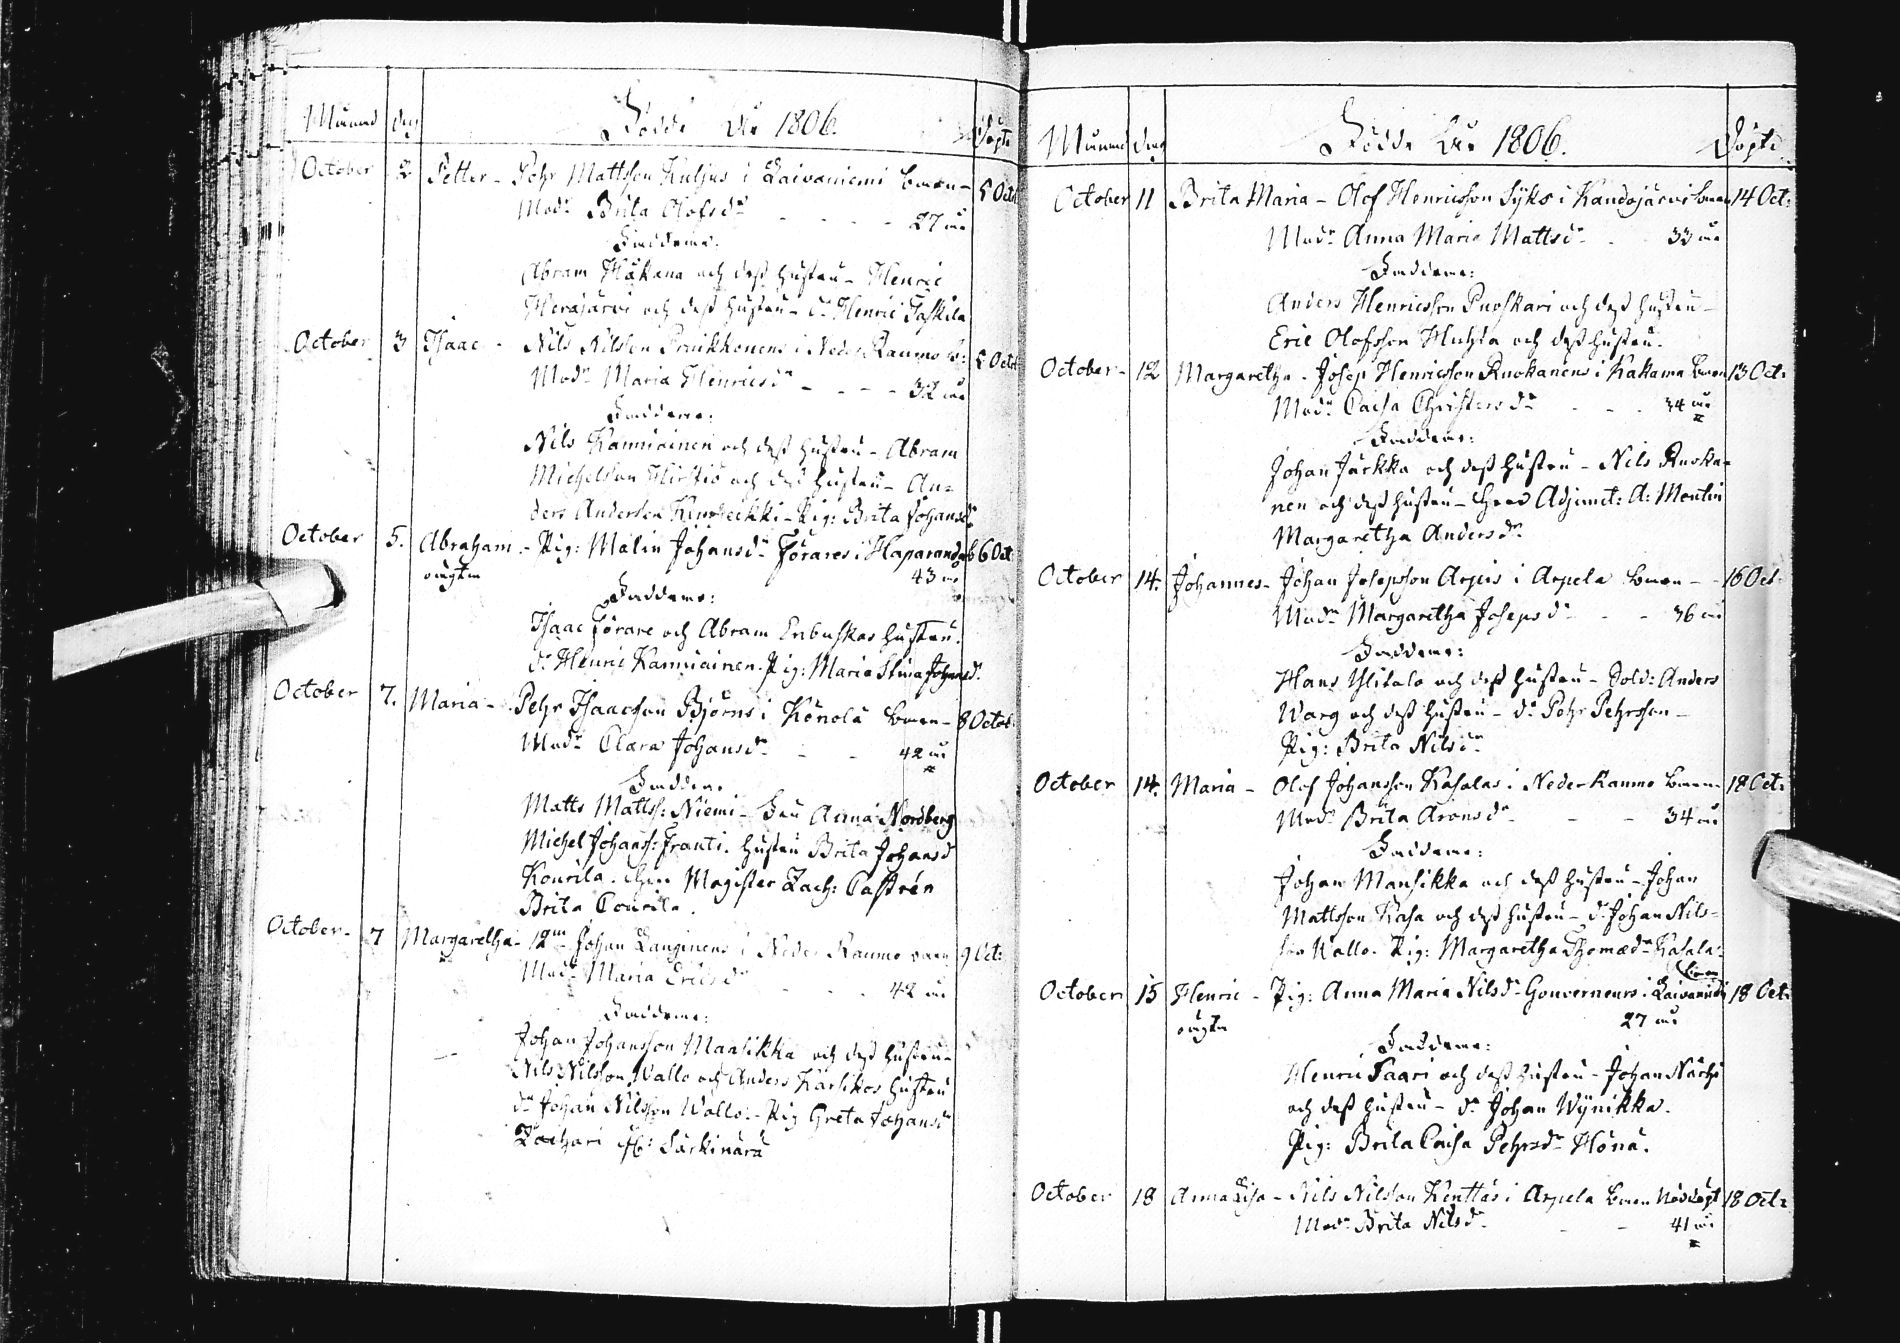 Månad dag Födde År 1806. Döpte
October 2 Petter - Pehr Mattsson Kuljus i Laivaniemi barn - 5 Octob
Mod: Brita Olofsd:r - - - - 27 år
Faddrarne:
Abram Håkana och dess hustru - Henric
Herajärvi och dess hustru - d: Henric Taskila
October 3 Isaac - Nils Nilsson Prnikkonens i Neder Raumo b: 5 Octob
Mod:r Maria Henricsd:r - - - - 32 år
Faddrarne:
Nils Kanniainen och dess hustru - Abram
Michelsson Hirstiö och dess hustru - An=
ders Andersson - Pig: Brita Johansd:r
October 5. Abraham - Pig: Malin Johansd:r Förares i Haparanda b 6 Oct
oägta 43 år
Faddrarne:
Isaac Förare och Abram Enbuskas hustru.
d: Henric Kanniainen. Pig: Maria Stina Johansd:
October 7. Maria - Pehr Isaacsson Björns i Könölä barn - 8 Octob
Mod:r Clara Johansd:r - - 42 år
Faddrar
Matts Mattss: Niemi - Fru Anna Nordberg
Michel Johanss: Franti. hustru Brita Johansd
Kourila. Herr Magister Zach: Castrén
Brita Courila.
October - 7 Margaretha - 12m Johan Langinens i Neder Raumo barn 9 Oct:
Mod:r Maria Ericsd:r - - 42 år
Faddrarne:
Johan Johansson Mansikka och dess hustru -
Nils Nilsson Wallo och Anders Karsikos hustru
d:r Johan Nilsson Wallo. - Pig Greta Johansd:r
Zachari Särkinärä
Månad dag Födde År 1806. Döpte
October 11 Brita Maria - Olof Henricsson Syks i Kandojärvi barn 14 Oct:
Mod:r Anna Maria Mattsd:r - 33 år
Faddrarne:
Anders Henricsson Puoskari och dess hustru -
Eric Olofsson Huhta och dess hustru.
October - 12 Margaretha - Josep Henricsson Ruokanens i Kakama barn 13 Oct:
Mod:r Caisa Christersd:r - - 34 år
Faddrarne:
Johan Jurkka och dess hustru - Nils Ruoka=
nen och dess hustru - Herr Adjunct: A: Montin
Margaretha Andersd:r
October 14. Johannes - Johan Josepsson Arpis i Arpela barn - - 16 Oct:
Mod:r Margaretha Josepsd:r - - 36 år
Faddrarne:
Hans Ylitalo och dess hustru - Sold: Anders
Warg och dess hustru - d:r Pehr Pehrsson -
Pig: Brita Nilsd:r
October 14. Maria - Olof Johansson Kasalas i Neder Raumo barn - 18 Oct:
Mod: Brita Aronsd:r - - 34 år
Faddrarne:
Johan Mansikka och dess hustru - Johan
Mattsson Kasa och dess hustru - d: Johan Nils=
son Wallo. Pig: Margaretha Thomæd:r Kasala.
barn
October 15 Henric - Pig: Anna Maria Nilsd:r Gouverneurs i Laivaniemi 18 Oct:
oägta 27 år
Faddrarne:
Henric Saari och dess hustru - Johan Närhi
och dess hustru - d:r Johan Wynikka.
Pig: Brita Caisa Pehrsd:r Hona.
October 18 Anna Lisa - Nils Nilsson Kenttäs i Arpela barn Nöddöpt 18 Oct:
Mod:r Brita Nilsd:r - - 41 år